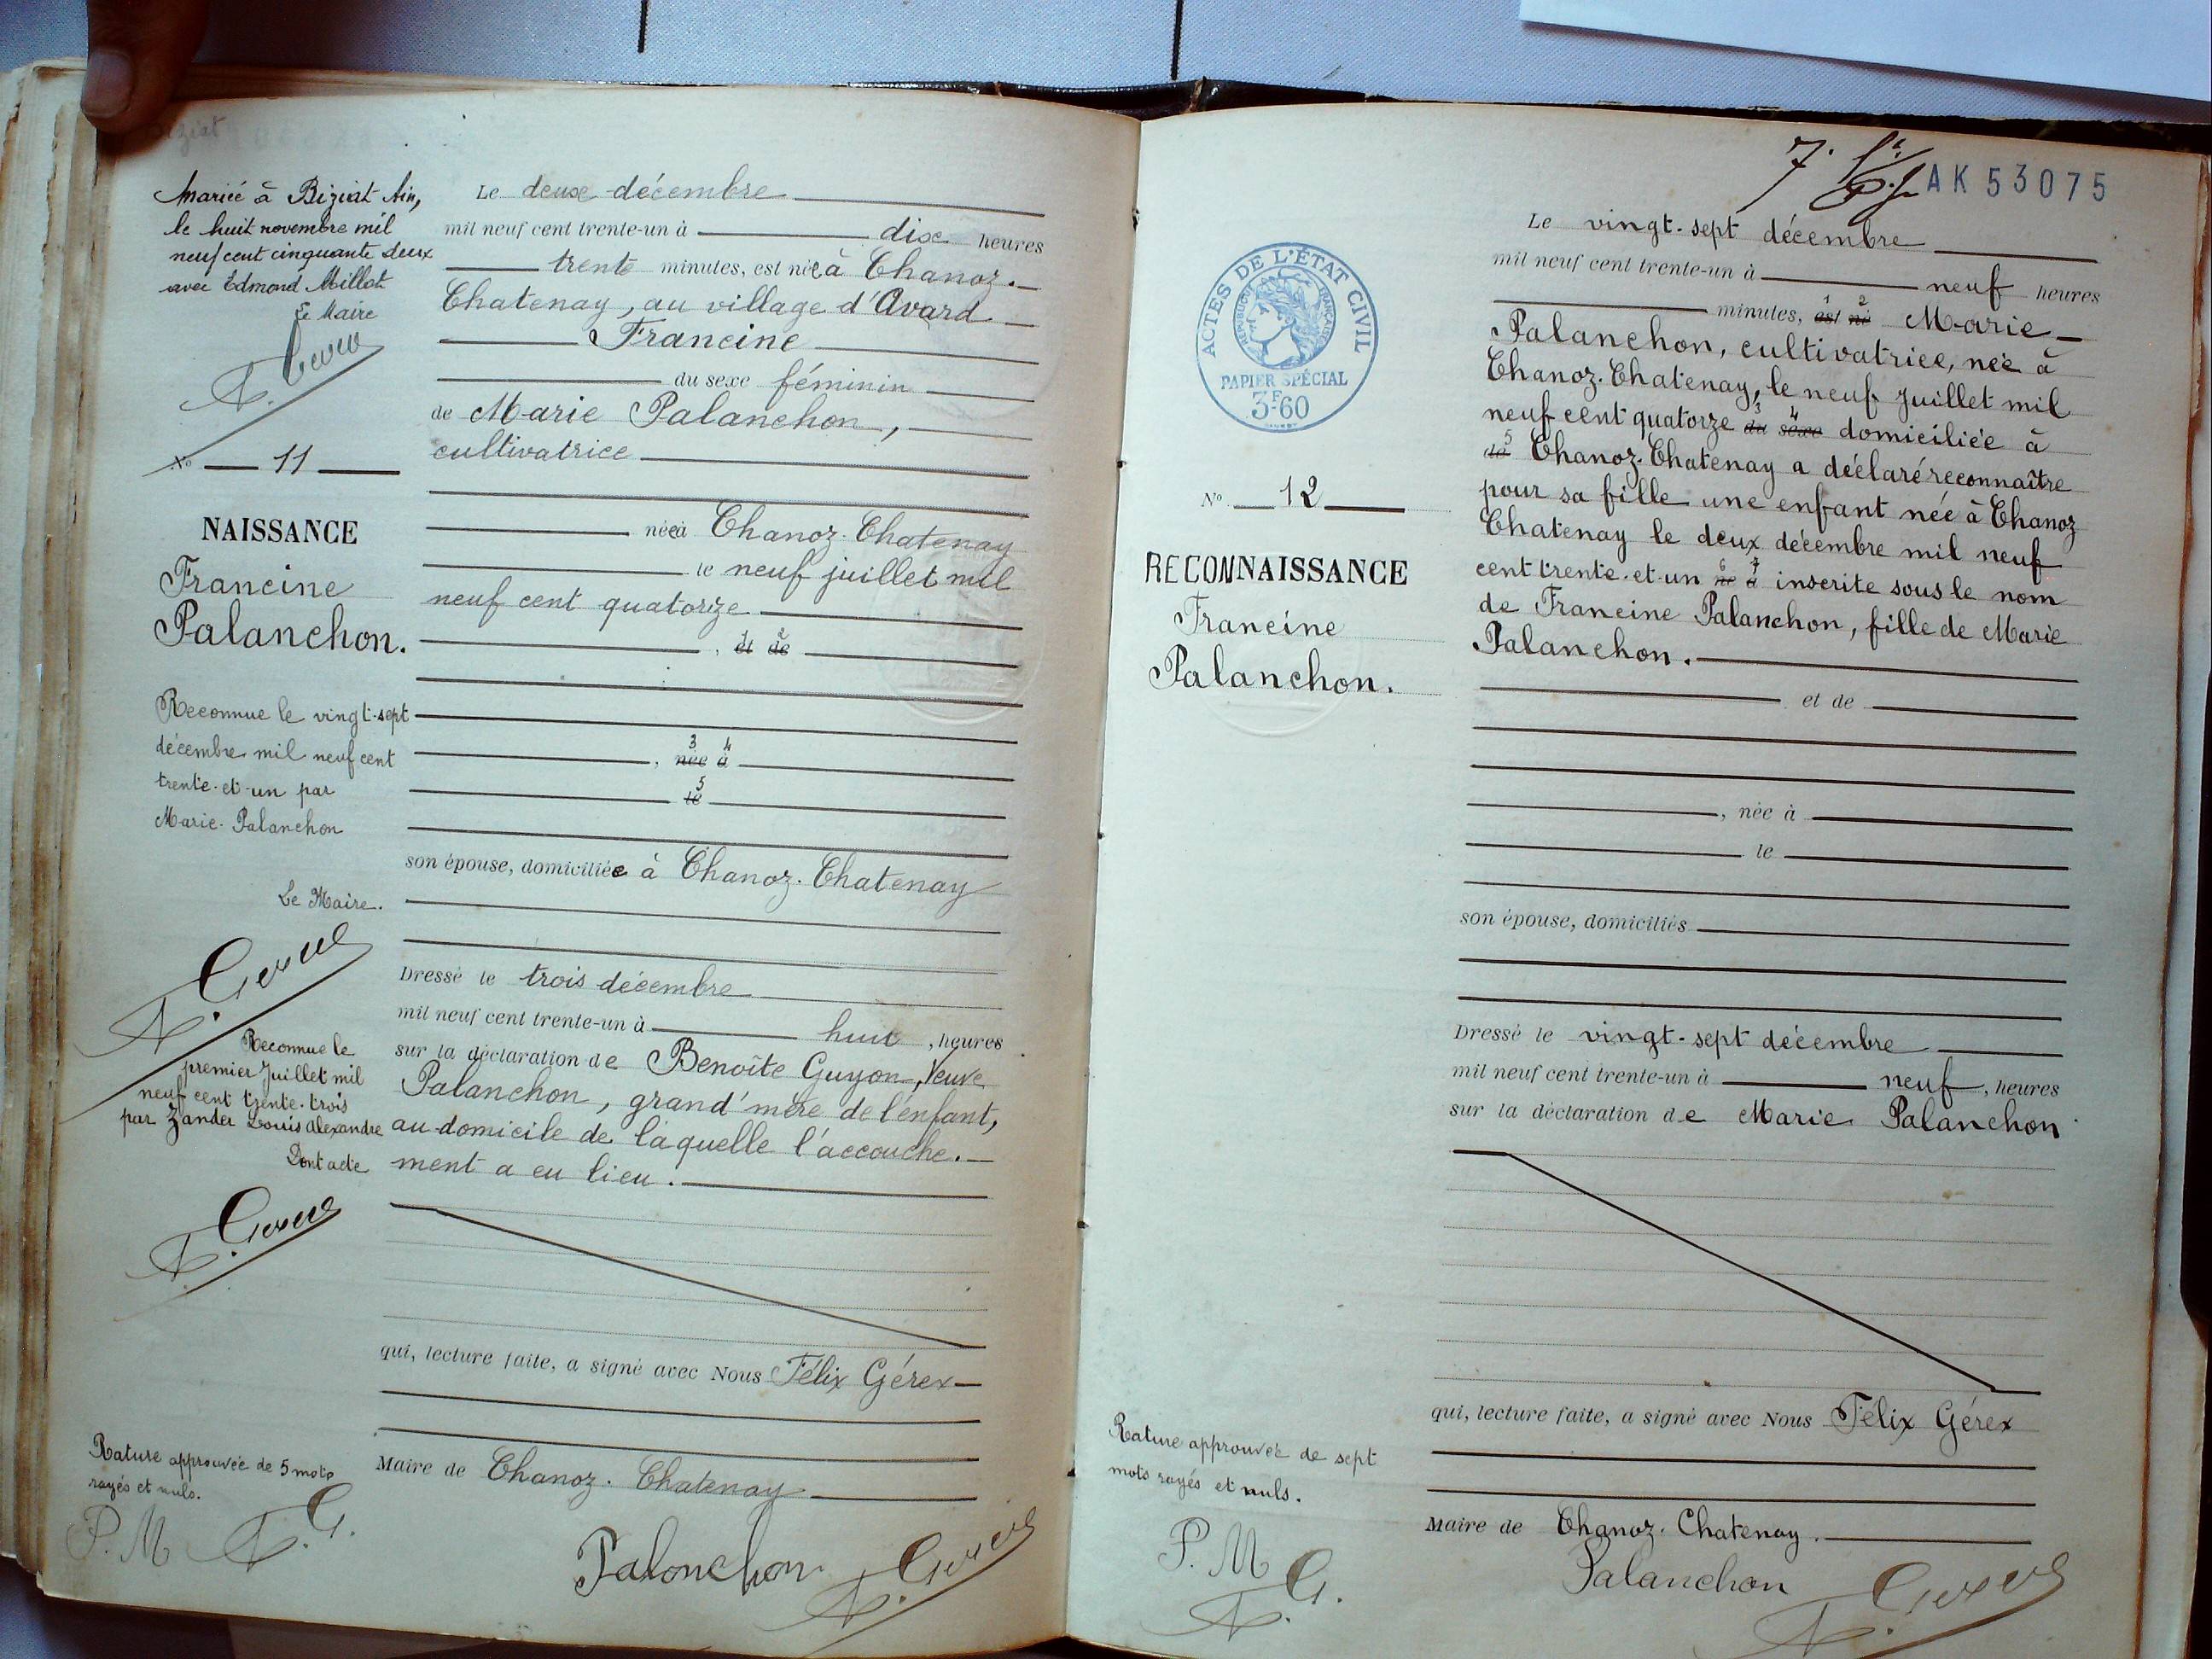 Mariée à Biziat Ain,
le huit novembre mil
neuf cent cinquante deux
avec Edmond Millot
Le Maire
N° 11
NAISSANCE
Francine
Palanchon.
Reconnue le vingt-sept
décembre mil neuf cent
trente-et-un par
Marie Palanchon
Le Maire.
Reconnue le
premier Juillet mil
neuf cent trente-trois
par Zander Louis Alexandre
Dont acte
Rature approuvée de 5 mots
rayés et nuls.
P. M
Le deux décembre
mil neuf cent trente-un à dix heures
trente minutes, est née à Chanoz-
Chatenay, au village d'Avard
Francine
du sexe féminin
de Marie Palanchon,
cultivatrice
née à Chanoz-Chatenay
le neuf juillet mil
neuf cent quatorze
1 2
, et de
3 4
, née à
5
le
son épouse, domiciliée à Chanoz-Chatenay
Dressé le trois décembre
mil neuf cent trente-un à huit, heures
sur la déclaration de Benoîte Guyon, Veuve
Palanchon, grand'mère de l'enfant,
au domicile de laquelle l'accouche-
ment a eu lieu.
qui, lecture faite, a signé avec Nous Félix Gérex
Maire de Chanoz-Chatenay
Palanchon
7.
AK 53075
ACTES DE L'ÉTAT CIVIL
RÉPUBLIQUE FRANÇAISE
PAPIER SPÉCIAL
3F60
N° 12
RECONNAISSANCE
Francine
Palanchon.
Rature approuvée de sept
mots rayés et nuls.
P. M
Le vingt-sept décembre
mil neuf cent trente-un à neuf heures
1 2
minutes, est né Marie
Palanchon, cultivatrice, née à
Chanoz-Chatenay, le neuf Juillet mil
3 4
neuf cent quatorze du sexe domiciliée à
5
de Chanoz-Chatenay a déclaré reconnaître
pour sa fille une enfant née à Chanoz
Chatenay le deux décembre mil neuf
6 7
cent trente-et-un né à inscrite sous le nom
de Francine Palanchon, fille de Marie
Palanchon.
et de
, née à
le
son épouse, domiciliés
Dressé le vingt-sept décembre
mil neuf cent trente-un à neuf, heures
sur la déclaration de Marie Palanchon
qui, lecture faite, a signé avec Nous Félix Gérex
Maire de Chanoz-Chatenay.
Palanchon